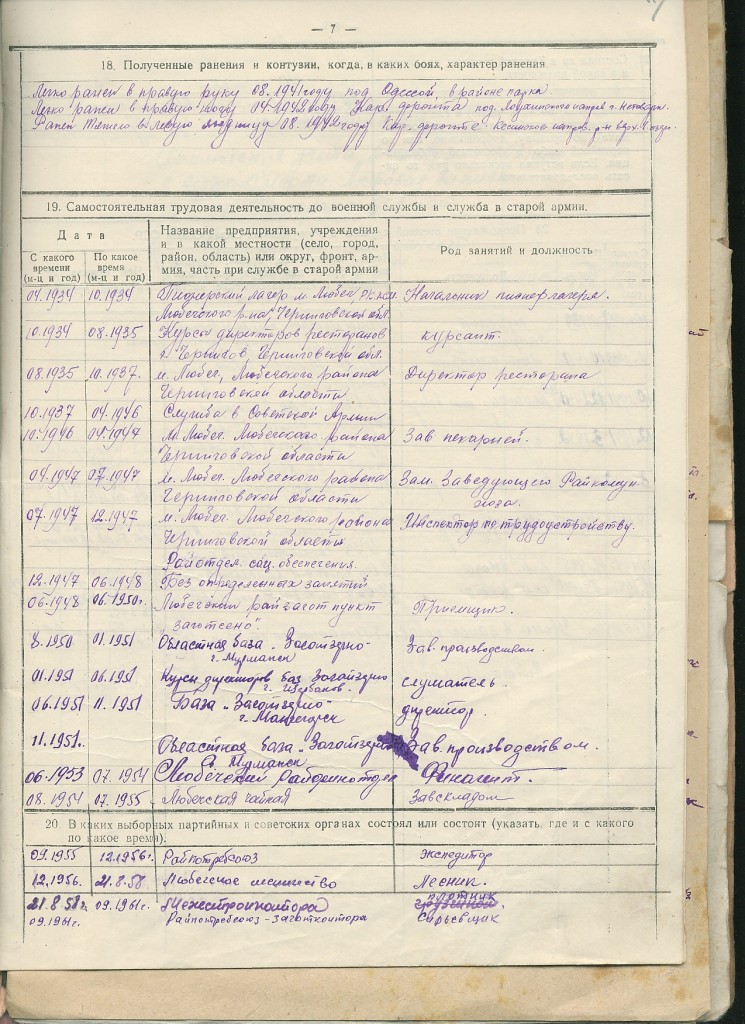 — 7 —
18. Полученные ранения и контузии, когда, в каких боях, характер ранения
Легко ранен в правую руку 08.1941 году под Одессой, в районе парка.
Легко ранен в правую 04.1942 году дорогита под
Ранен тяжело в левую 08.1942 году
19. Самостоятельная трудовая деятельность до военной службы и служба в старой армии.
Дата
С какого времени (м-ц и год)
По какое время (м-ц и год)
Название предприятия, учреждения
и в какой местности (село, город,
район, область) или округ, фронт, ар-
мия, часть при службе в старой армии
Род занятий и должность
04.1934 10.1934 Пионерский лагерь м. Любеч Начальник пионерлагеря.
Любечского р-на, Черниговской обл.
10.1934 08.1935 Курсы директоров ресторанов курсант.
г. Чернигов, Черниговской обл.
08.1935 10.1937. м. Любеч, Любечского района Директор ресторана
Черниговской области
10.1937 04.1946 Служба в Советской Армии
10.1946 04.1947 м. Любеч. Любечского района Зав. пекарней.
Черниговской области
04.1947 07.1947 м. Любеч. Любечского района Зам. Заведующего Райкомун-
Черниговской области хоза.
07.1947 12.1947 м. Любеч. Любечского района Инспектор по трудоустройству.
Черниговской области
Райотдел. соц. обеспечения.
12.1947 06.1948 Без определенных занятий
06.1948 06.1950г. Любечский райзагот пункт Приемщик.
"заготсено".
8.1950 01.1951 Областная база „Заготзерно- Зав. производством.
г. Мурманск
01.1951 06.1951 Курсы директоров баз Заготзерно слушатель.
г. Щербаков.
06.1951 11.1951 База „Заготзерно- директор.
г. Мончегорск
11.1951г. Областная база „Заготзерно Зав. производством.
г. Мурманск
06.1953 07.1954 Любечский Райфинотдел Финагент.
08.1954 07.1955 Любечская чайная Завскладом
20. В каких выборных партийных и советских органах состоял или состоит (указать, где и с какого
по какое время).
09.1955 12.1956г. Райпотребсоюз Экспедитор
12.1956. 21.8.58 Любечское лесничество Лесник.
21.8.58г. 09.1961г. Межстройконтора плотник
09.1961г. Райпотребсоюз-Заготконтора Сырьевщик